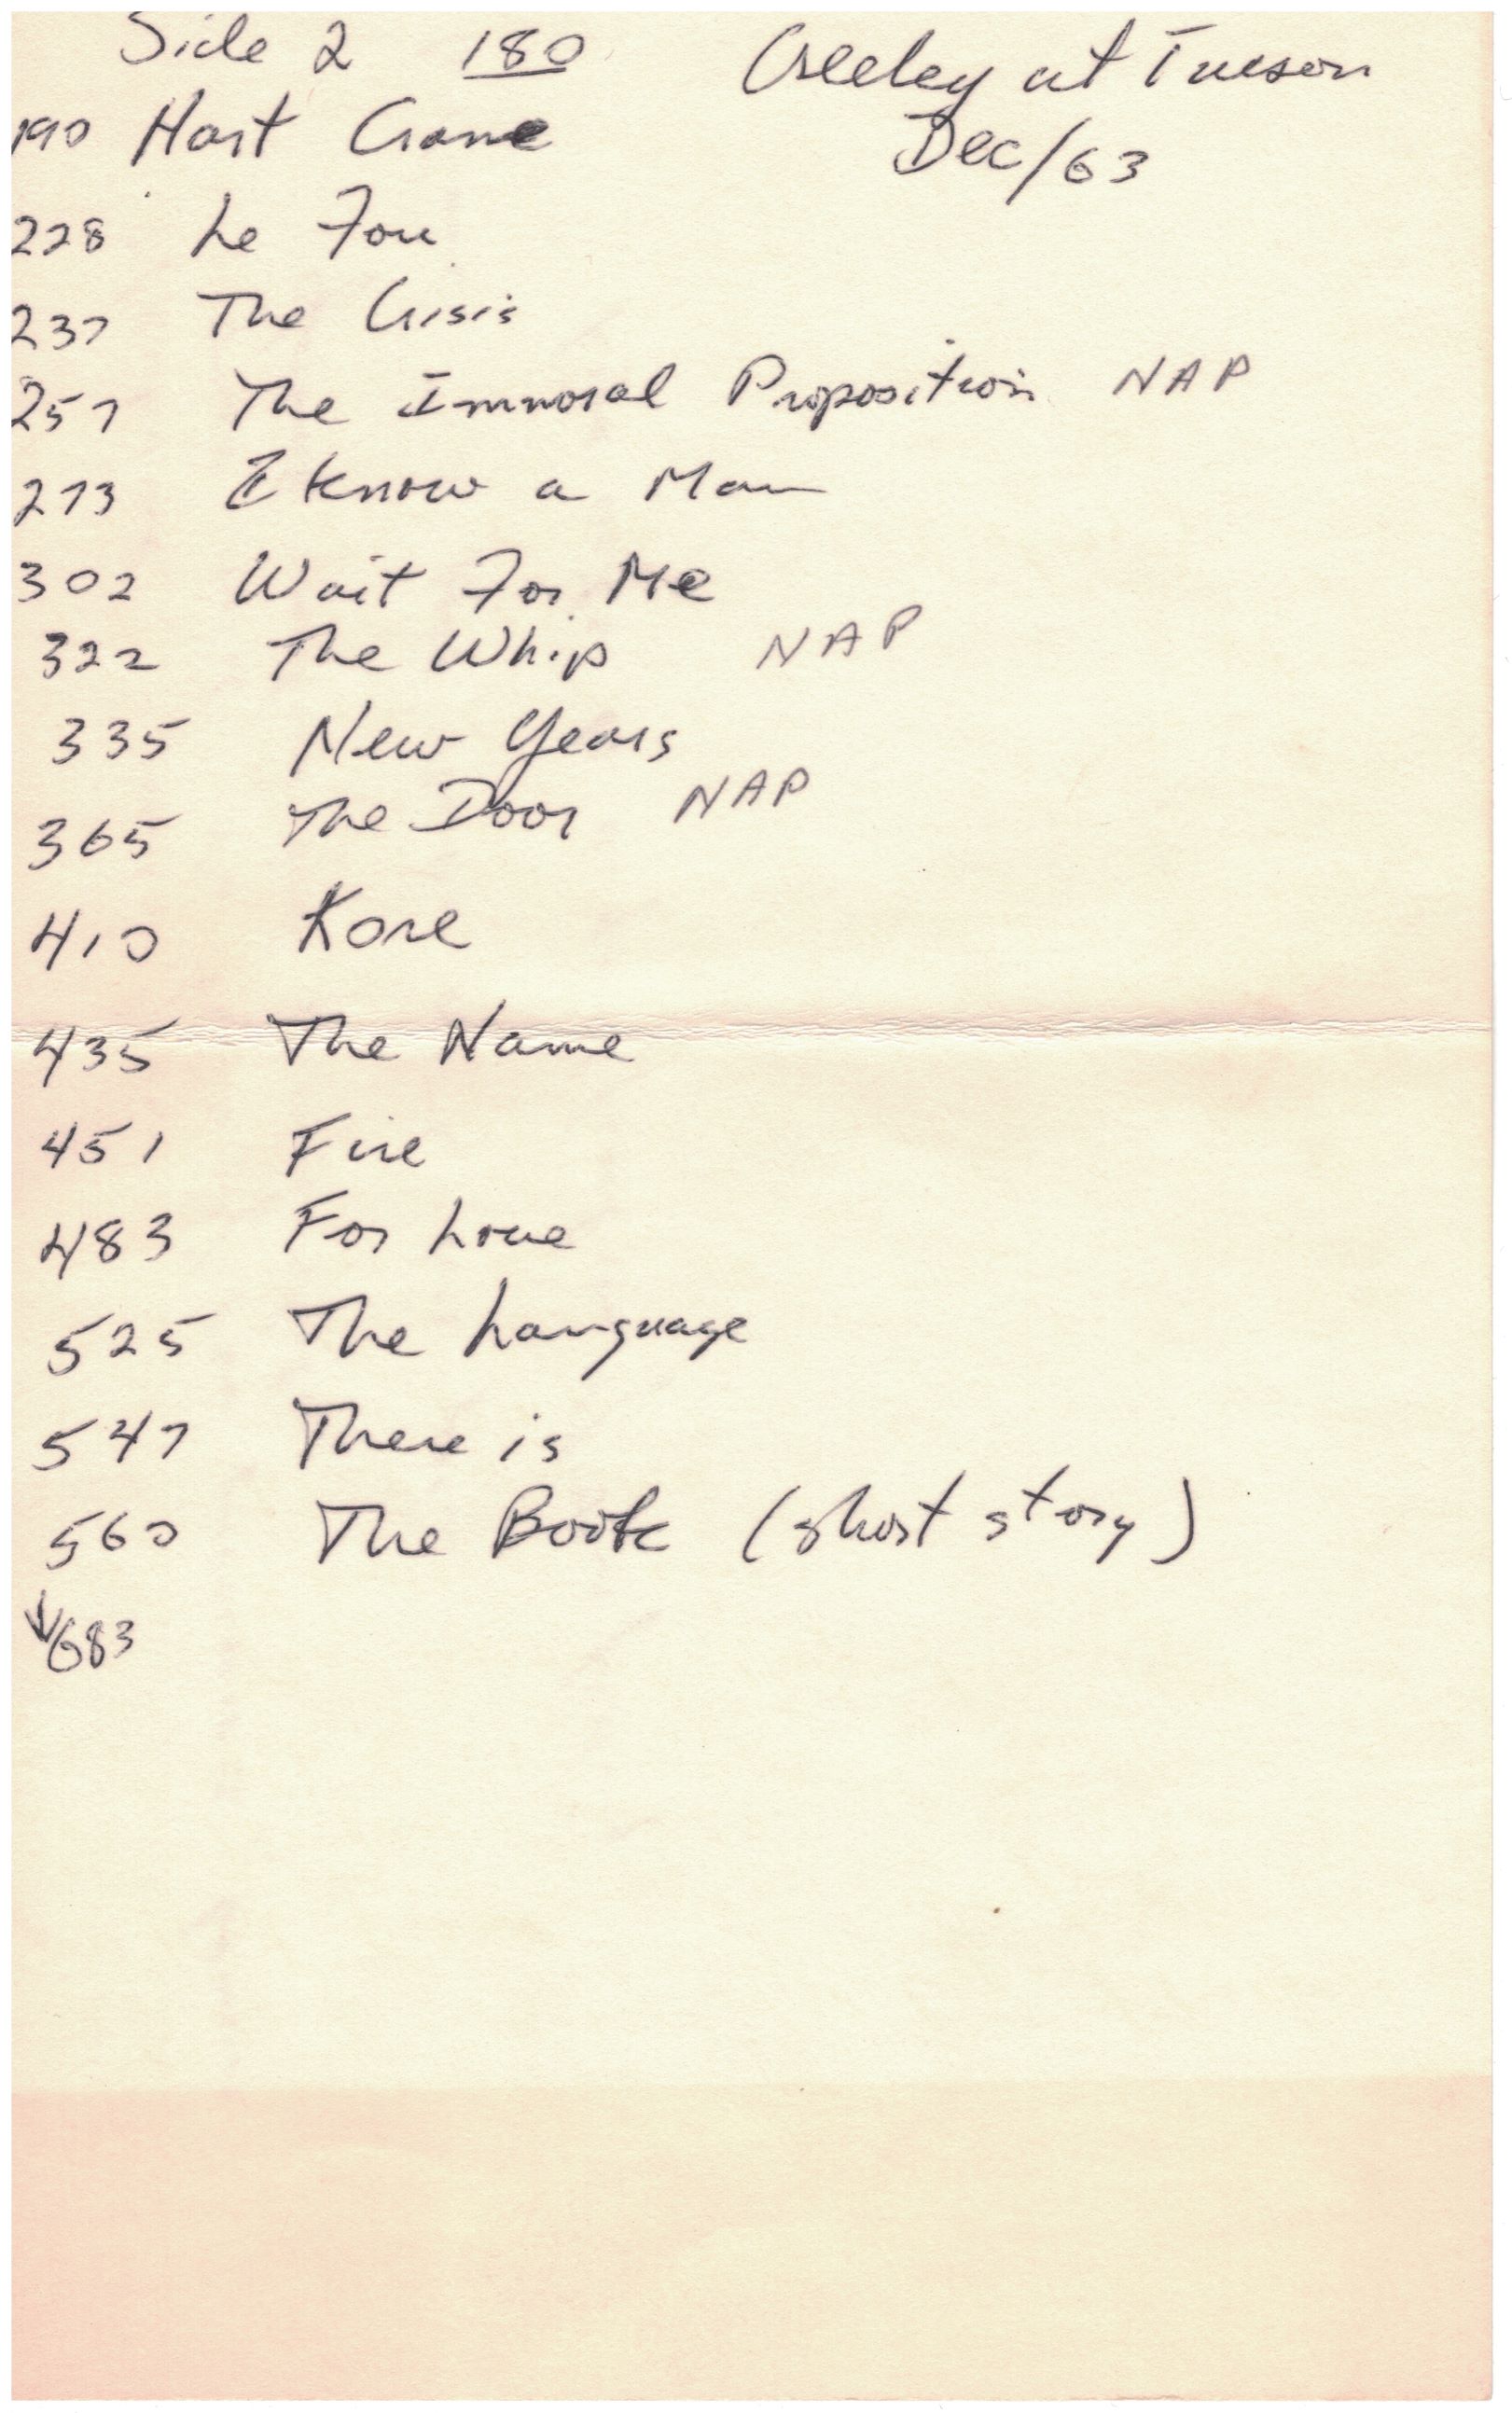 Side 2 180 Creeley at Tucson
Dec/63
190 Hart Crane
228 Le Fou
237 The Crisis
257 The Immoral Proposition NAP
273 I know a Man
302 Wait For Me
322 The Whip NAP
335 New Years
365 The Door NAP
410 Kore
435 The Name
451 Fire
483 For Love
525 The Language
547 There is
560 The Book (ghost story)
↓683